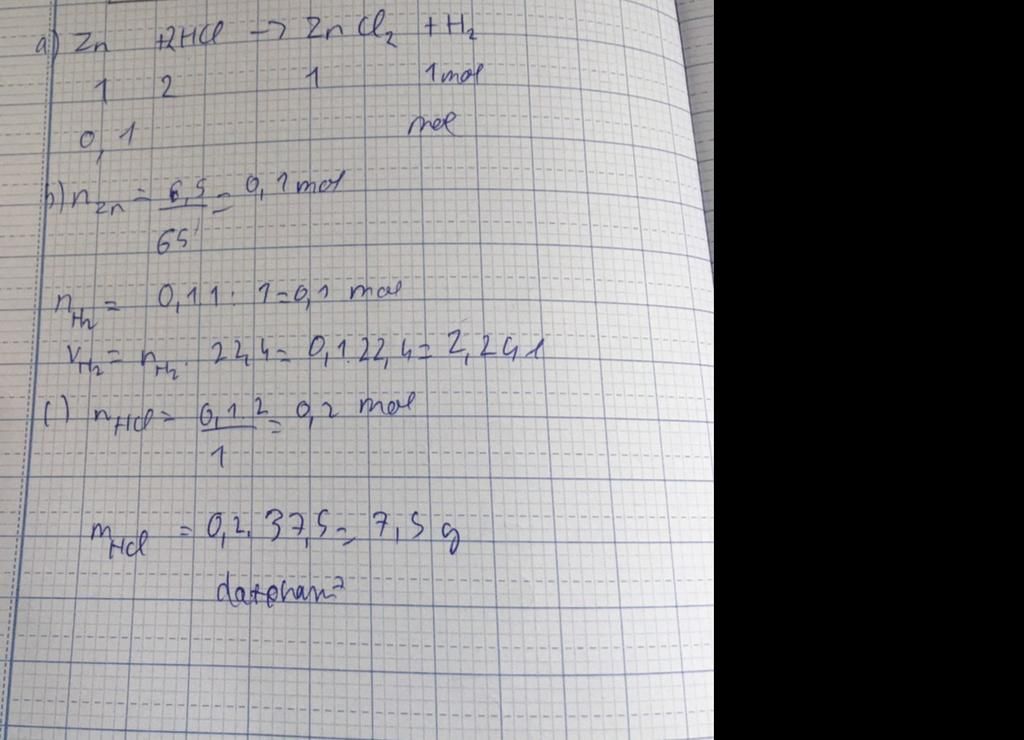 a) Zn +2HCl -> ZnCl₂ +H₂
1 2 1 1mol
0,1 mol
b) n_Zn = 6,5/65 = 0,1 mol
n_H₂ = 0,1 1 : 1=0,1 mol
V_H₂ = n_H₂ . 22,4 = 0,1.22,4= 2,24 l
c) n_HCl = 0,1.2/1 = 0,2 mol
m_HCl = 0,2. 37,5 = 7,5 g
datphan²